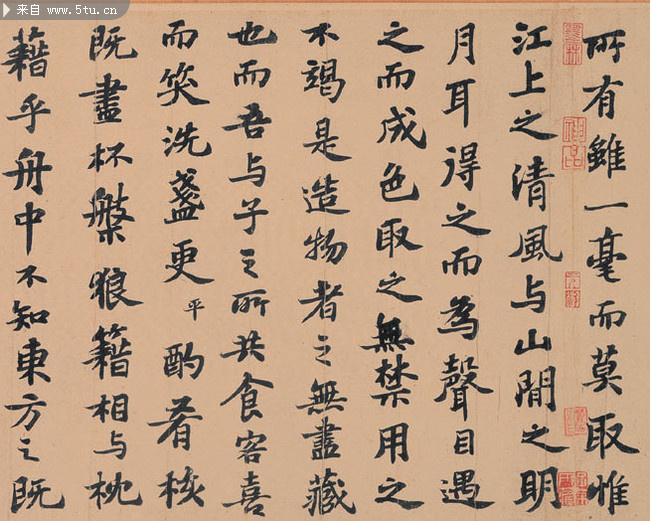 来自 www.5tu.cn
所有雖一毫而莫取惟
江上之清風与山間之明
月耳得之而為聲目遇
之而成色取之無禁用之
不竭是造物者之無盡藏
也而吾与子之所共食客喜
而笑洗盞更平酌肴核
既盡杯槃狼籍相与枕
藉乎舟中不知東方之既